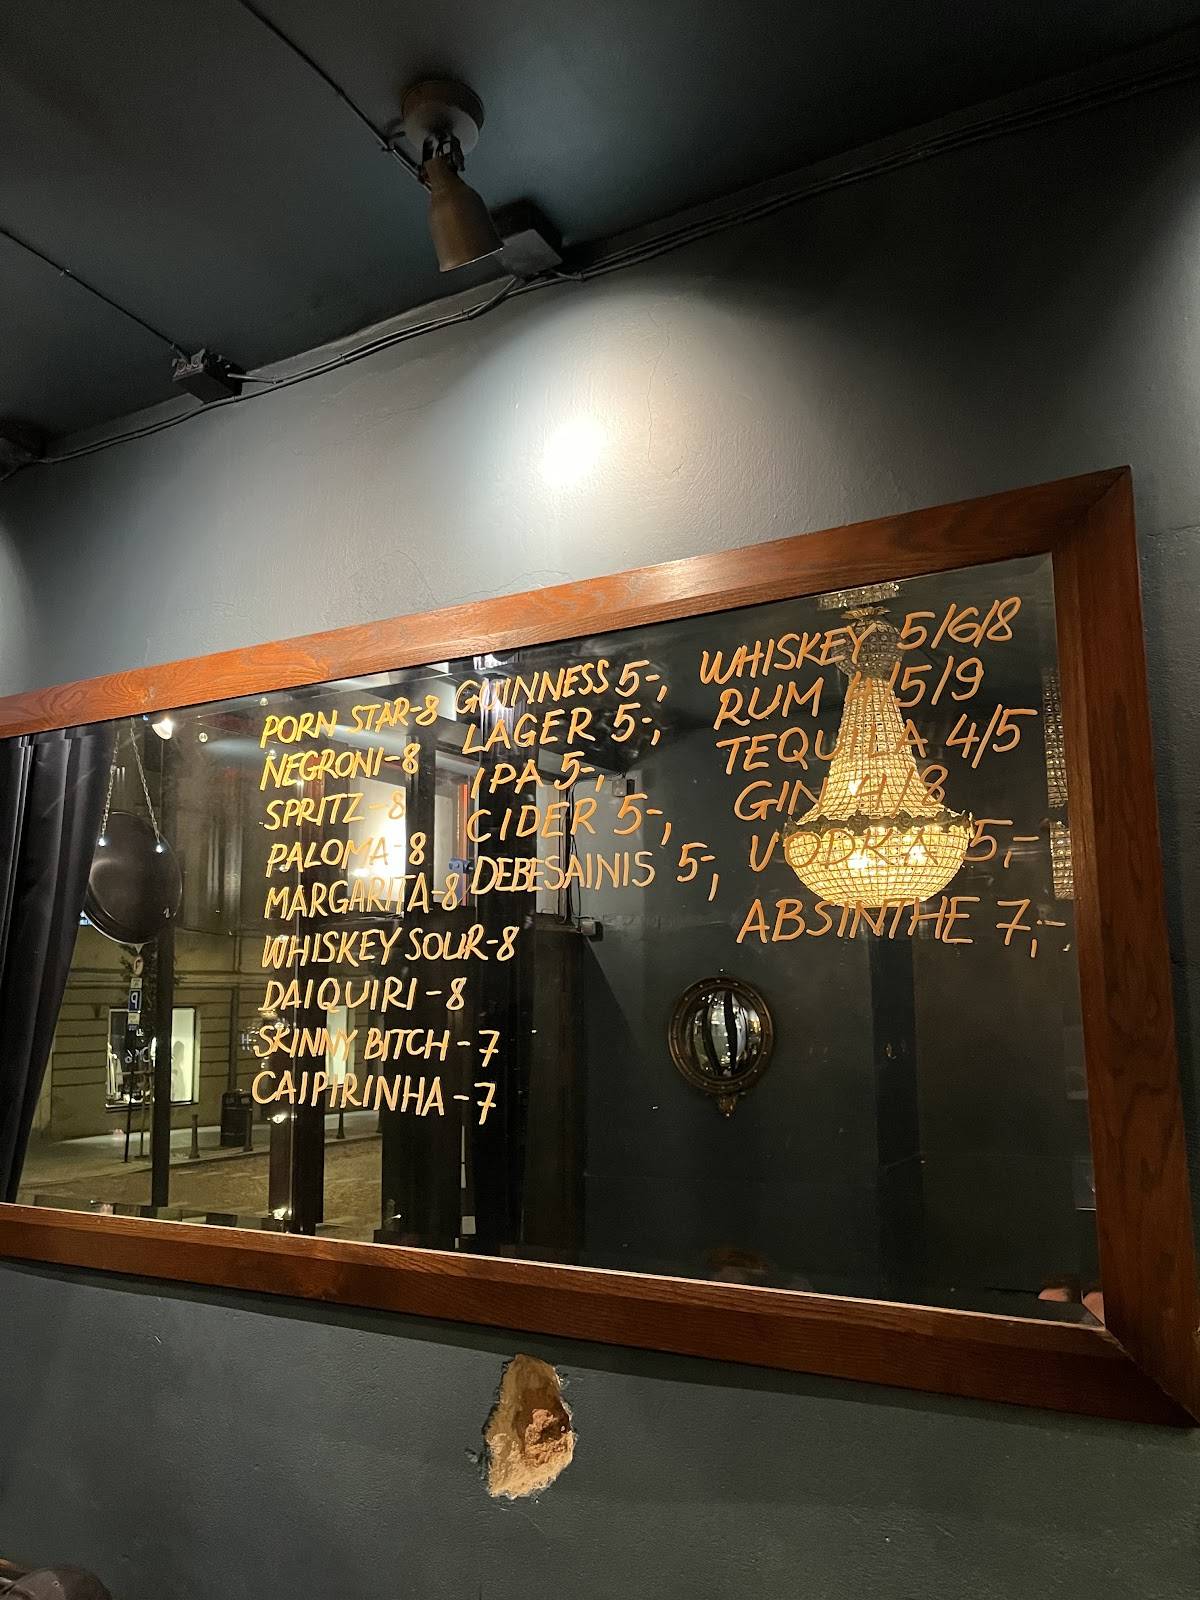 PORN STAR-8
NEGRONI-8
SPRITZ-8
PALOMA-8
MARGARITA-8
WHISKEY SOUR-8
DAIQUIRI-8
SKINNY BITCH-7
CAIPIRINHA-7
GUINNESS 5-,
LAGER 5-,
IPA 5-,
CIDER 5-,
DEBESAINIS 5-,
WHISKEY 5/6/8
RUM 4/5/9
TEQUILA 4/5
GIN 4/8
VODKA 5,-
ABSINTHE 7,-
P